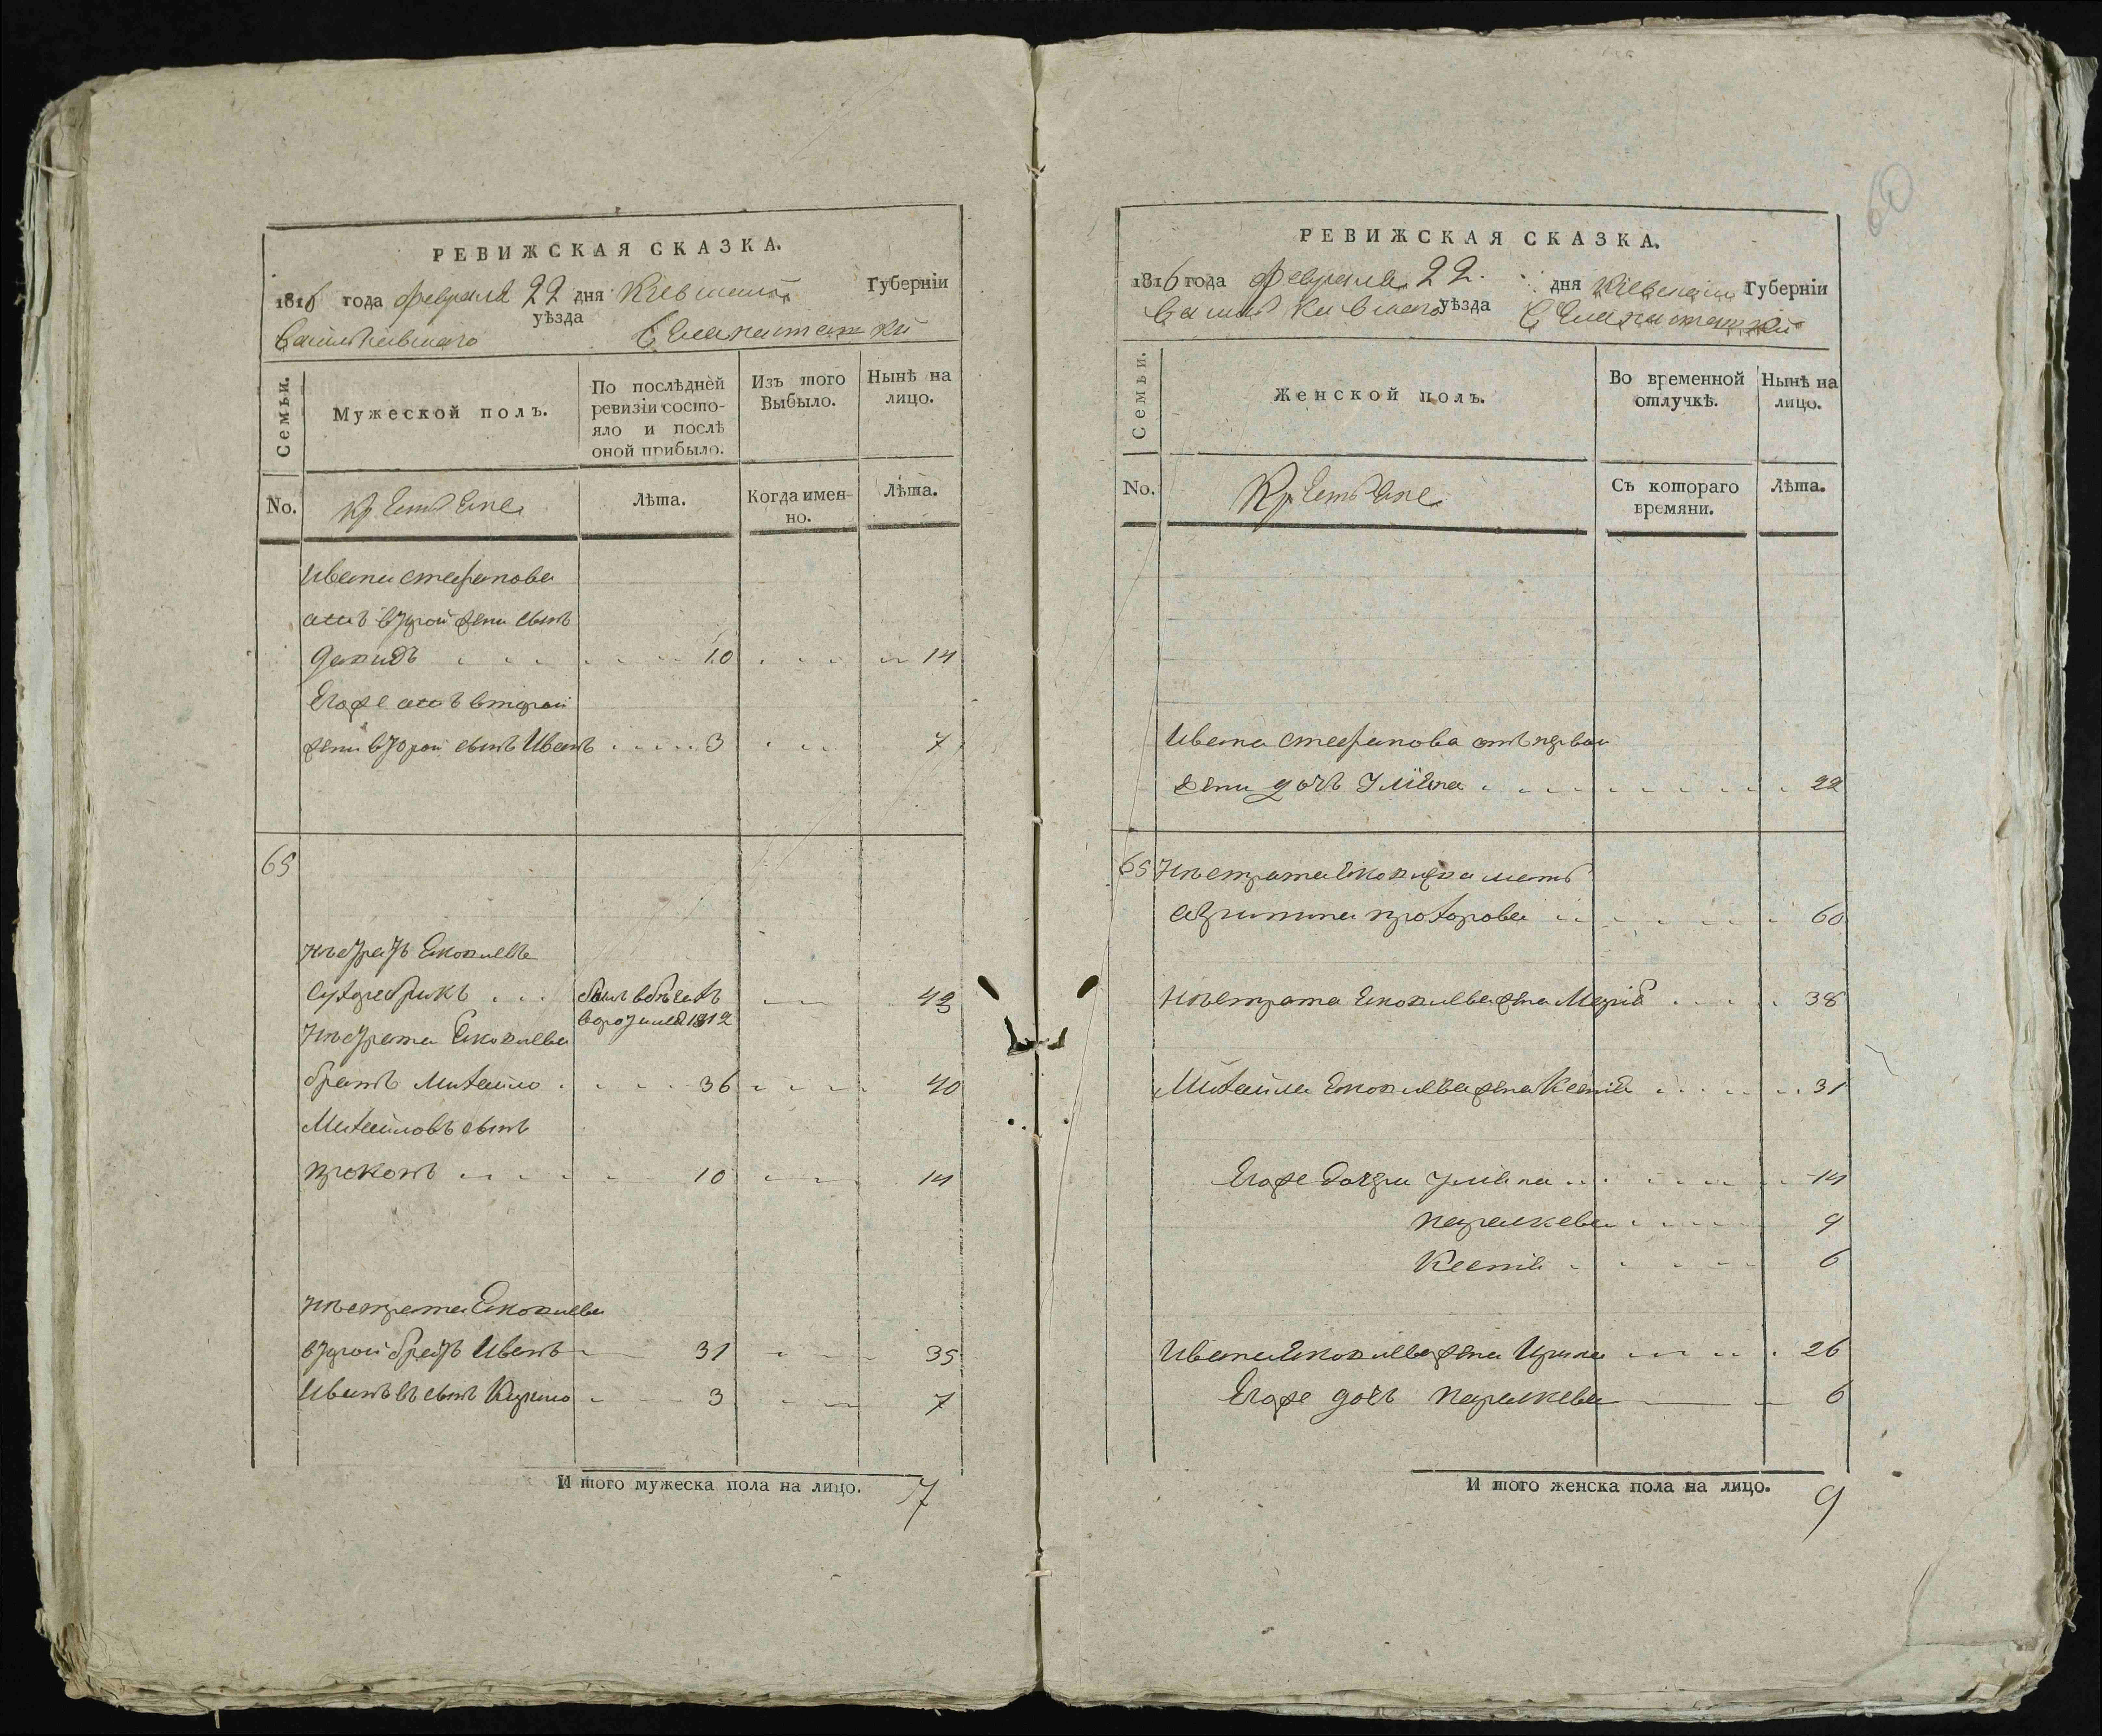 60
РЕВИЖСКАЯ СКАЗКА.
1816 года февраля 22 дня Киевской Губерніи
Васильковскаго уѣзда
Семьи. Мужеской полъ. По послѣдней ревизіи состояло и послѣ оной прибыло. Изъ того Выбыло. Нынѣ на лицо.
No. Крестьяне Лѣта. Когда именно. Лѣта.
Ивана Стефанова
отъ второй жены сынъ
Демидъ 10 14
Егоже отъ второй
жены второй сынъ Иванъ 3 7
65
Сухоребрикъ 43
1812
братъ Михайло 36 40
Михайловъ сынъ
Прокопъ 10 14
второй братъ Иванъ 31 35
Ивановъ сынъ Кирило 3 7
И того мужеска пола на лицо. 7
РЕВИЖСКАЯ СКАЗКА.
1816 года февраля 22. дня Киевской Губерніи
Васильковскаго уѣзда
Семьи. Женской полъ. Во временной отлучкѣ. Нынѣ на лицо.
No. Крестьяне Съ котораго времяни. Лѣта.
Ивана Стефанова отъ первой
жены дочь Уліяна 22
65 мать
Прохорова 60
жена Марія 38
Михайла жена Ксенія 31
Егоже дочери Уліяна 14
Параскева 9
Ксенія 6
Ивана жена Ирина 26
Егоже дочь Параскева 6
И того женска пола на лицо. 9